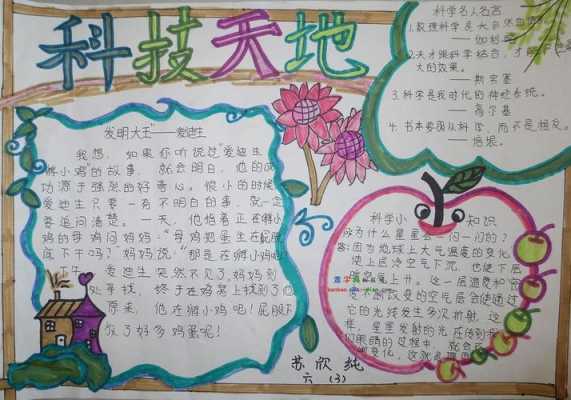 科技天地
发明大王"——爱迪生
我想,如果你听说过"爱迪生
孵小鸡"的故事,就会明白,他的成
功源于强烈的好奇心。很小的时候
爱迪生只要一有不明白的事,就一定
要追问清楚。一天,他指着正在孵小
鸡的母鸡问妈妈:"母鸡把蛋坐在屁股
底下干吗?"妈妈说:"那是在孵小鸡呢
下午,爱迪生突然不见了,妈妈到
处寻找,终于在鸡窝上找到了他
原来,他在孵小鸡吧!屁股下
放了好多鸡蛋呢!
科学名人名言
1.数理科学是大自
——伽利略
2.天才跟科学结合,才能
大的效果。
——斯宾塞
3.科学是我时代的神经系统。
——高尔基
4.书本要随从科学,而不是
——培根。
科学小知识
为什么星星会一闪一闪的?
答:因为地球上大气温度的变化
使上层冷空气下沉,也使下层
上升。这一层温度和密
度不断改变的空气层会使通过
它的光线发生多次折射,这
样,星星发射的光在传到
们眼睛的过程中,就会
变化,这就是
苏欣纯
六(3)